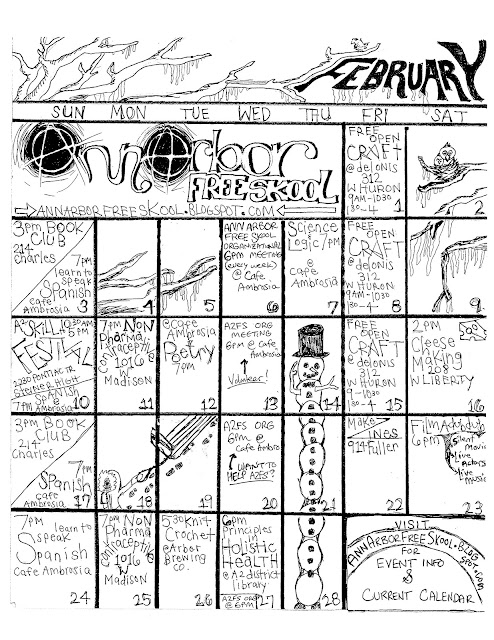 FEBRUARY
SUN MON TUE WED THU FRI SAT
Ann Arbor
FREE SKOOL
ANNARBORFREESKOOL.BLOGSPOT.COM
FREE
OPEN
CRAFT
@ delonis
312
W HURON
9AM-1030
1
2
3pm BOOK
CLUB
214
Charles
7pm
learn to
speak
Spanish
cafe
Ambrosia
3
4
5
ANN ARBOR
FREE SKOOL
ORGANIZATIONAL
6PM MEETING
(every week)
@ Cafe
Ambrosia
6
Science
Logic 7PM
@
Cafe
Ambrosia
7
FREE
OPEN
CRAFT
@ delonis
312
W HURON
9AM-1030
8
9
A2 SKILL
FESTIVAL
2280 PONTIAC TR
SPANISH
7pm Ambrosia
10
7pm NON
Pharma
Contraceptive
1016
W
Madison
11
@cafe
Ambrosia
Poetry
7pm
12
A2FS ORG
MEETING
6PM @ Cafe
Ambrosia
Volunteer!
13
14
FREE
OPEN
CRAFT
@ delonis
312
W HURON
9-1030
15
2PM
Cheese
Making
208
W LIBERTY
16
3PM
BOOK
CLUB
214
Charles
7pm
Spanish
cafe
Ambrosia
17
18
19
A2FS ORG
6PM @
Cafe Ambro
WANT TO
HELP A2FS?
20
21
Make
ZINES
914 Fuller
22
Film
6PM
Silent
Movie
Live
Actors
live
music
23
7PM learn to
speak
Spanish
Cafe Ambrosia
24
7pm NON
Pharma
Contraceptive
1016
W
Madison
25
5:30 Knit
Crochet
@ Arbor
Brewing
CO.
26
6pm
Principles
in
Holistic
HEALTH
@ A2 district
library
A2FS ORG
@ 6PM
27
28
VISIT
ANNARBORFREESKOOL.BLOGSPOT.COM
FOR
EVENT INFO
&
CURRENT CALENDAR